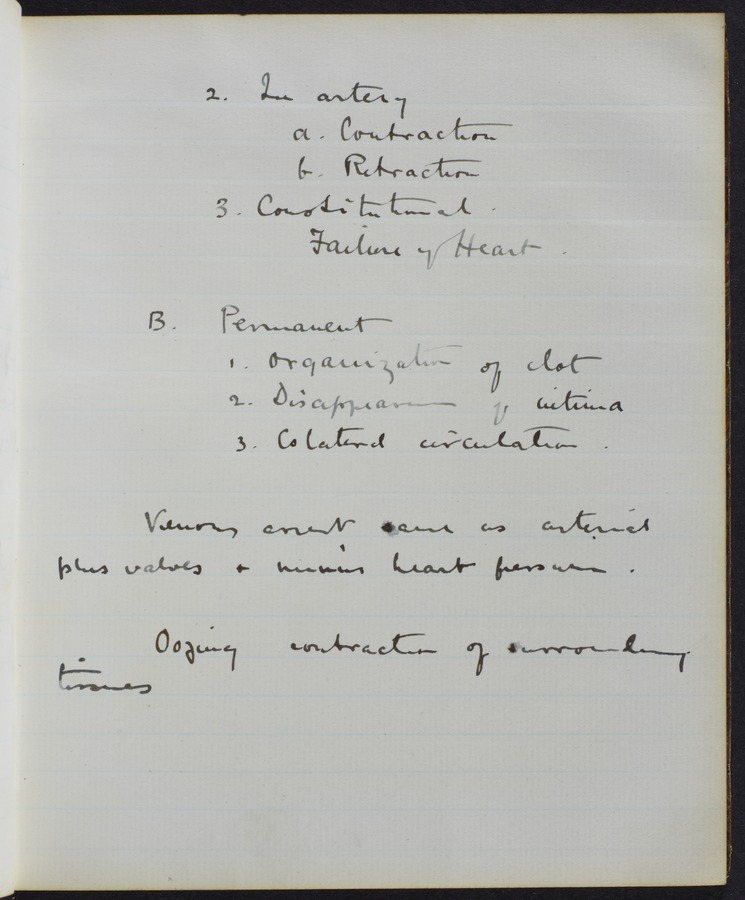 2. In artery
a. Contraction
b. Retraction
3. Constitutional.
Failure of Heart.
B. Permanent
1. Organization of clot
2. Disappearance of intima
3. Colateral circulation.
Venous arrest same as arterial
plus valves + minus heart pressure.
Oozing contraction of surrounding
tissues